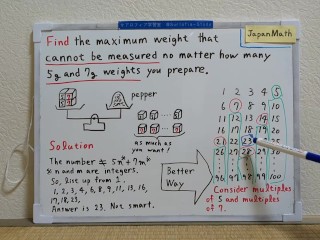 JapanMath
Find the maximum weight that
cannot be measured no matter how many
5g and 7g weights you prepare.
pepper
as much as
you want!
Solution
The number ≠ 5n + 7m
※ n and m are integers.
So, list up from 1.
1, 2, 3, 4, 6, 8, 9, 11, 13, 16,
17, 18, 23,
Answer is 23. Not smart.
Better
Way
1 2 3 4 5
6 7 8 9 10
11 12 13 14 15
16 17 18 19 20
21 22 23
26
96 99 100
Consider multiples
of 5 and multiples
of 7.